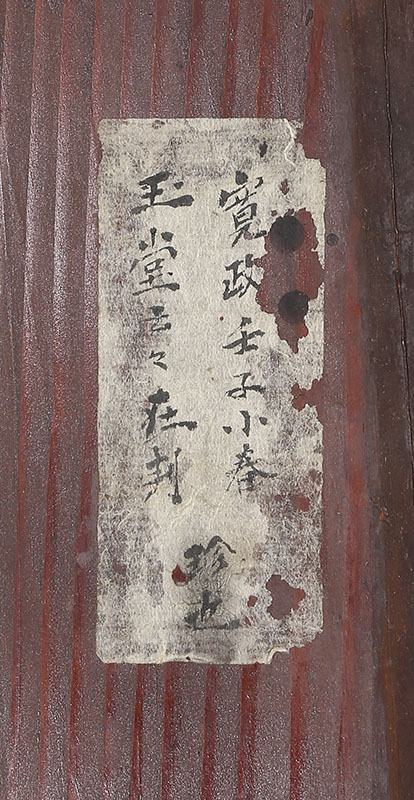 寛政壬子小春
玉堂云々在判
珍也